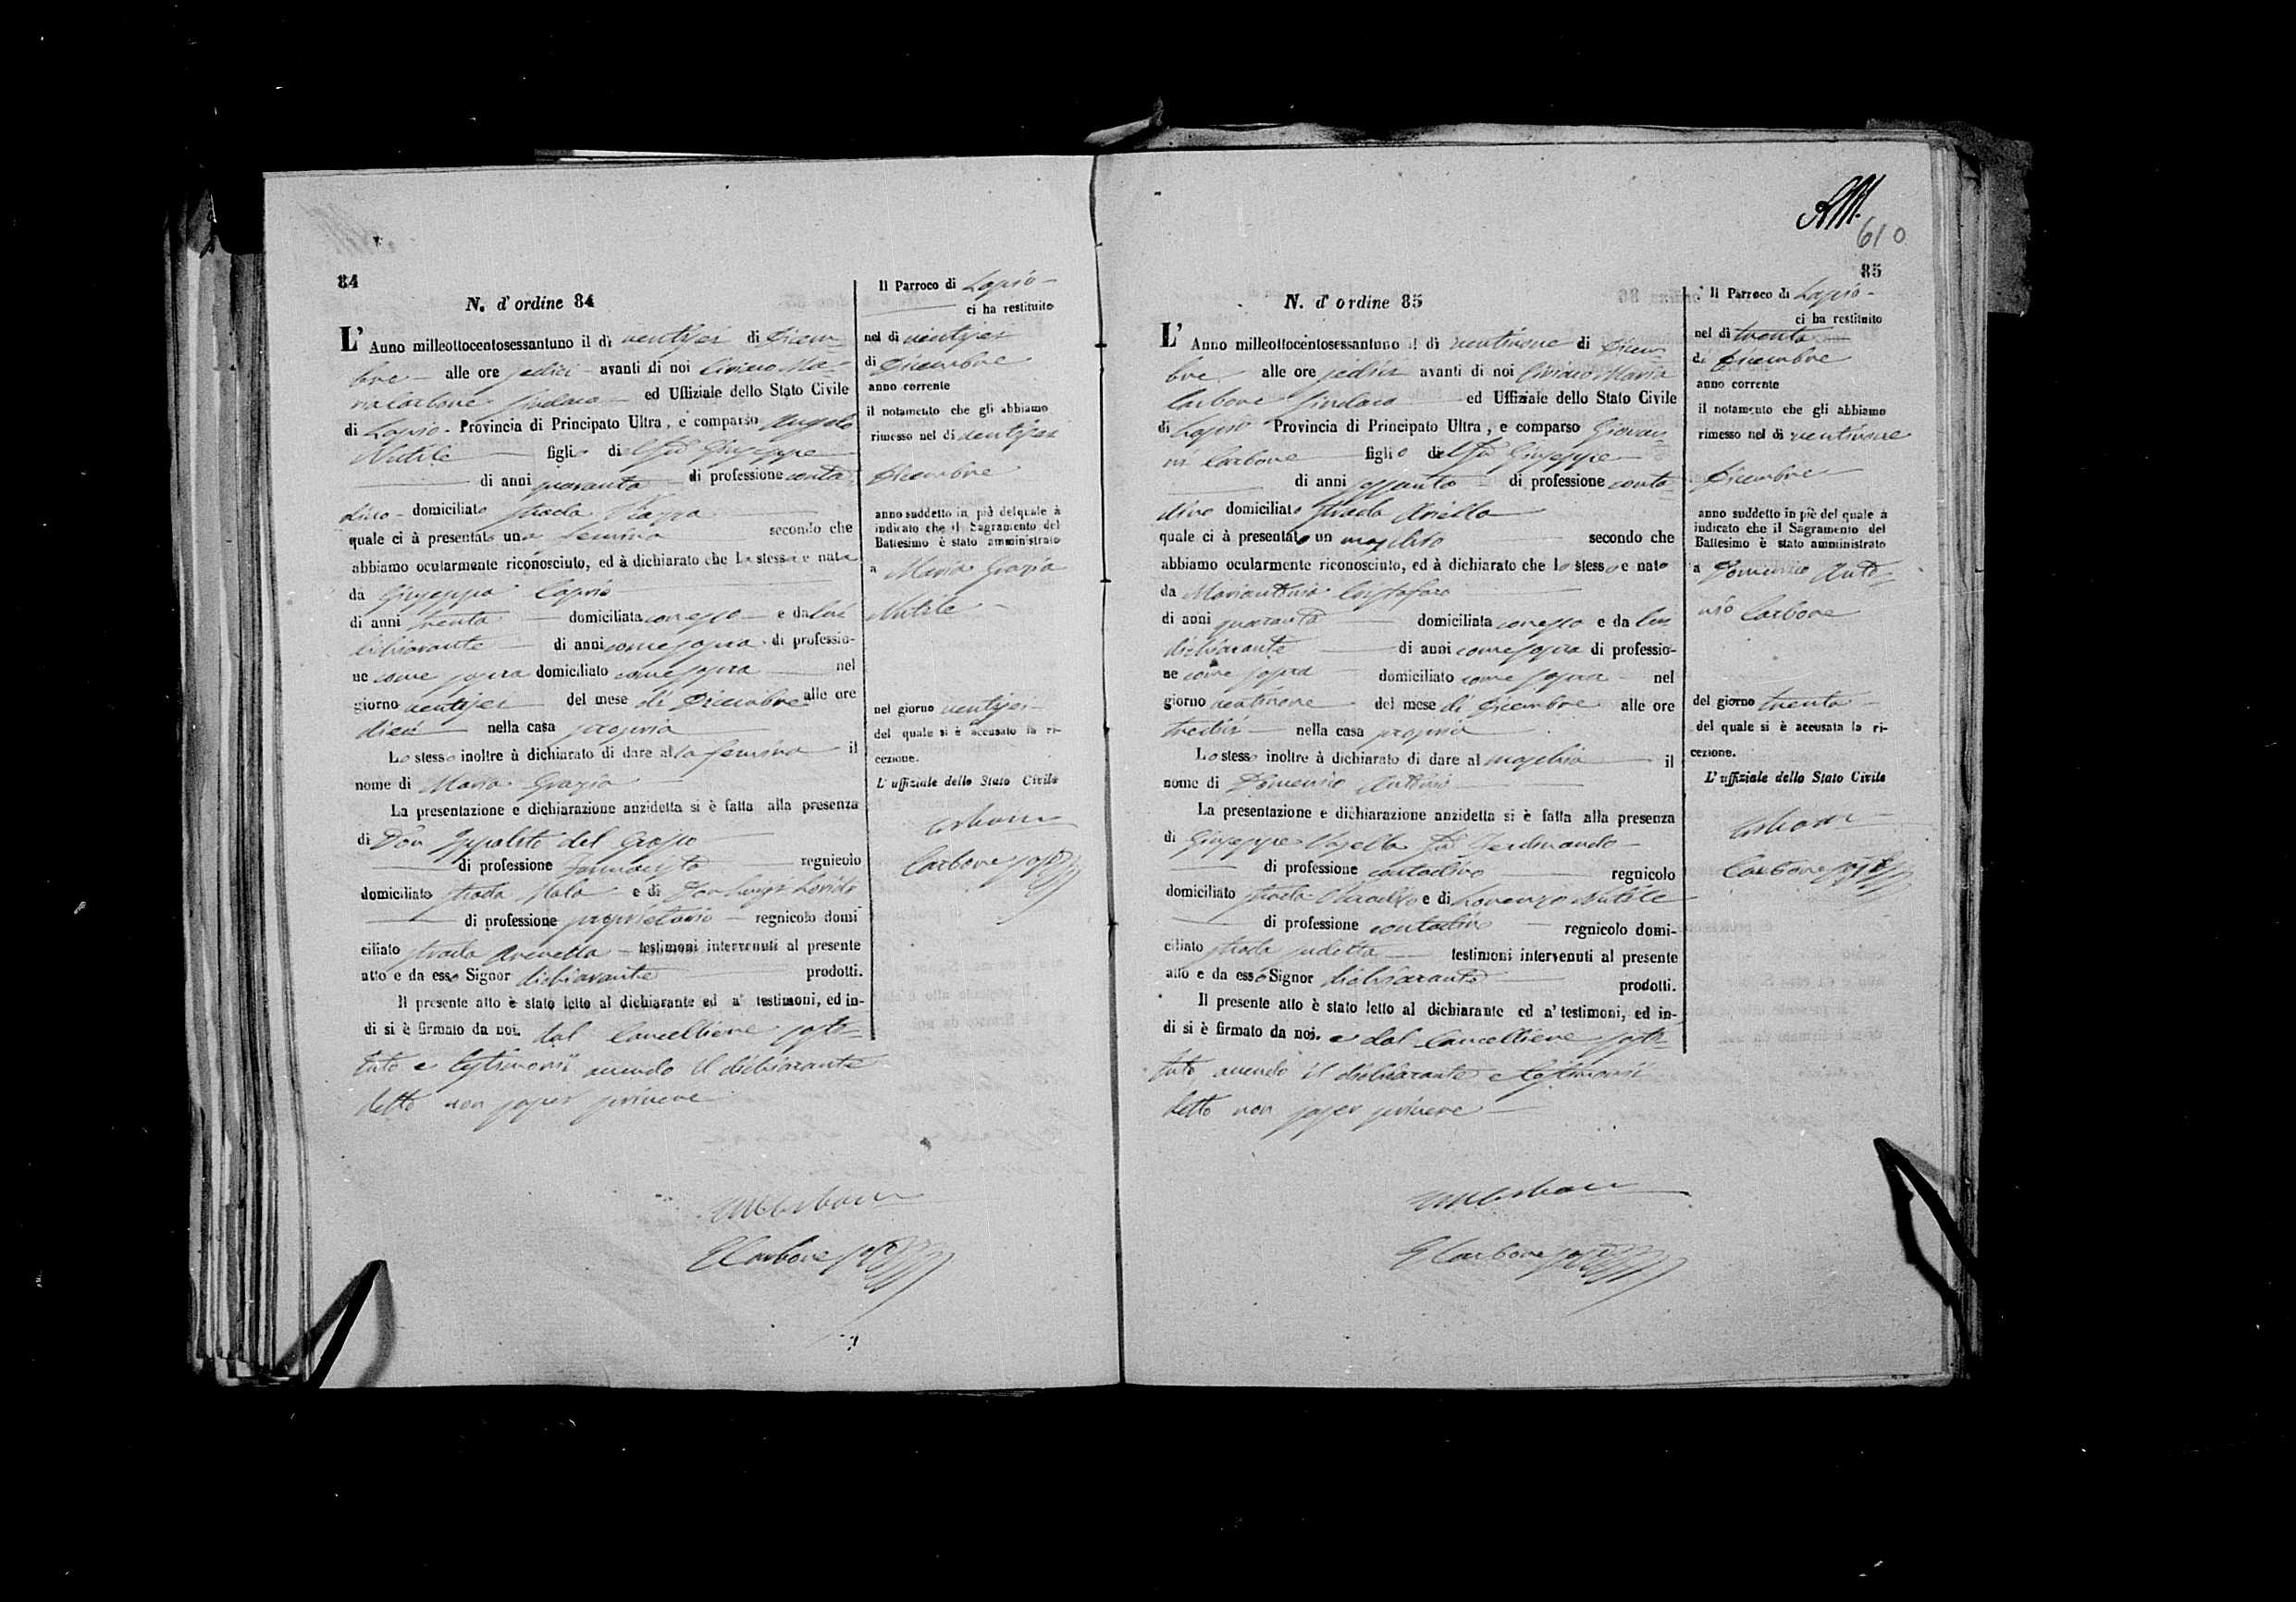 84
N. d' ordine 84
L' Anno milleottocentosessantuno il dì ventisei di Dicem-
bre alle ore sedici avanti di noi Civico Ma-
ria Carbone Sindaco ed Uffiziale dello Stato Civile
di Lapio Provincia di Principato Ultra, e comparso Angelo
Nutile figlio del fu Giuseppe
di anni quaranta di professione conta
dino domiciliato strada Piazza
quale ci à presentato una femina secondo che
abbiamo ocularmente riconosciuto, ed à dichiarato che la stessa e nata
da Giuseppa Caprio
di anni trenta domiciliata con esso e da lui
dichiarante di anni come sopra di professio-
ne come sopra domiciliato come sopra nel
giorno ventisei del mese di Dicembre alle ore
dieci nella casa propria
Lo stesso inoltre à dichiarato di dare alla femina il
nome di Maria Grazia
La presentazione e dichiarazione anzidetta si è fatta alla presenza
di Don Ippolito del Grosso
di professione Farmacista regnicolo
domiciliato strada e di Don Luigi
di professione proprietario regnicolo domi
ciliato strada Arenella testimoni intervenuti al presente
atto e da esso Signor dichiarante prodotti.
Il presente atto è stato letto al dichiarante ed a' testimoni, ed in-
di si è firmato da noi. dal Cancelliere sosti-
tuto e testimonii avendo il dichiarante
detto non saper scrivere
Carbone
Il Parroco di Lapio
ci ha restituito
nel dì ventisei
di Dicembre
anno corrente
il notamento che gli abbiamo
rimesso nel dì ventisei
Dicembre
anno suddetto in piè del quale à
indicato che il Sagramento del
Battesimo è stato amministrato
a Maria Grazia
Nutile
nel giorno ventisei
del quale si è accusato la ri-
cezione.
L' uffiziale dello Stato Civile
Carbone
Carbone
610
85
N. d' ordine 85
L' Anno milleottocentosessantuno il dì ventinove di Dicem-
bre alle ore sedici avanti di noi Civico Maria
Carbone Sindaco ed Uffiziale dello Stato Civile
di Lapio Provincia di Principato Ultra, e comparso Giovan-
ni Carbone figlio del fu Giuseppe
di anni sessanta di professione conta-
dino domiciliato strada Ariella
quale ci à presentato un maschio secondo che
abbiamo ocularmente riconosciuto, ed à dichiarato che lo stesso e nato
da Mariantonia Cristofaro
di anni quaranta domiciliata con esso e da lui
dichiarante di anni come sopra di professio-
ne come sopra domiciliato come sopra nel
giorno ventinove del mese di Dicembre alle ore
tredici nella casa propria
Lo stesso inoltre à dichiarato di dare al maschio il
nome di Domenico Antonio
La presentazione e dichiarazione anzidetta si è fatta alla presenza
di Giuseppe fu Ferdinando
di professione contadino regnicolo
domiciliato strada e di Lorenzo Nutile
di professione contadino regnicolo domi-
ciliato strada sudetta testimoni intervenuti al presente
atto e da esso Signor dichiarante prodotti.
Il presente atto è stato letto al dichiarante ed a' testimoni, ed in-
di si è firmato da noi. e dal Cancelliere sosti-
tuto avendo il dichiarante e testimonii
detto non saper scrivere
Carbone
Il Parroco di Lapio
ci ha restituito
nel dì trenta
di Dicembre
anno corrente
il notamento che gli abbiamo
rimesso nel dì ventinove
Dicembre
anno suddetto in piè del quale à
indicato che il Sagramento del
Battesimo è stato amministrato
a Domenico Anto-
nio Carbone
del giorno trenta
del quale si è accusata la ri-
cezione.
L' uffiziale dello Stato Civile
Carbone
Carbone